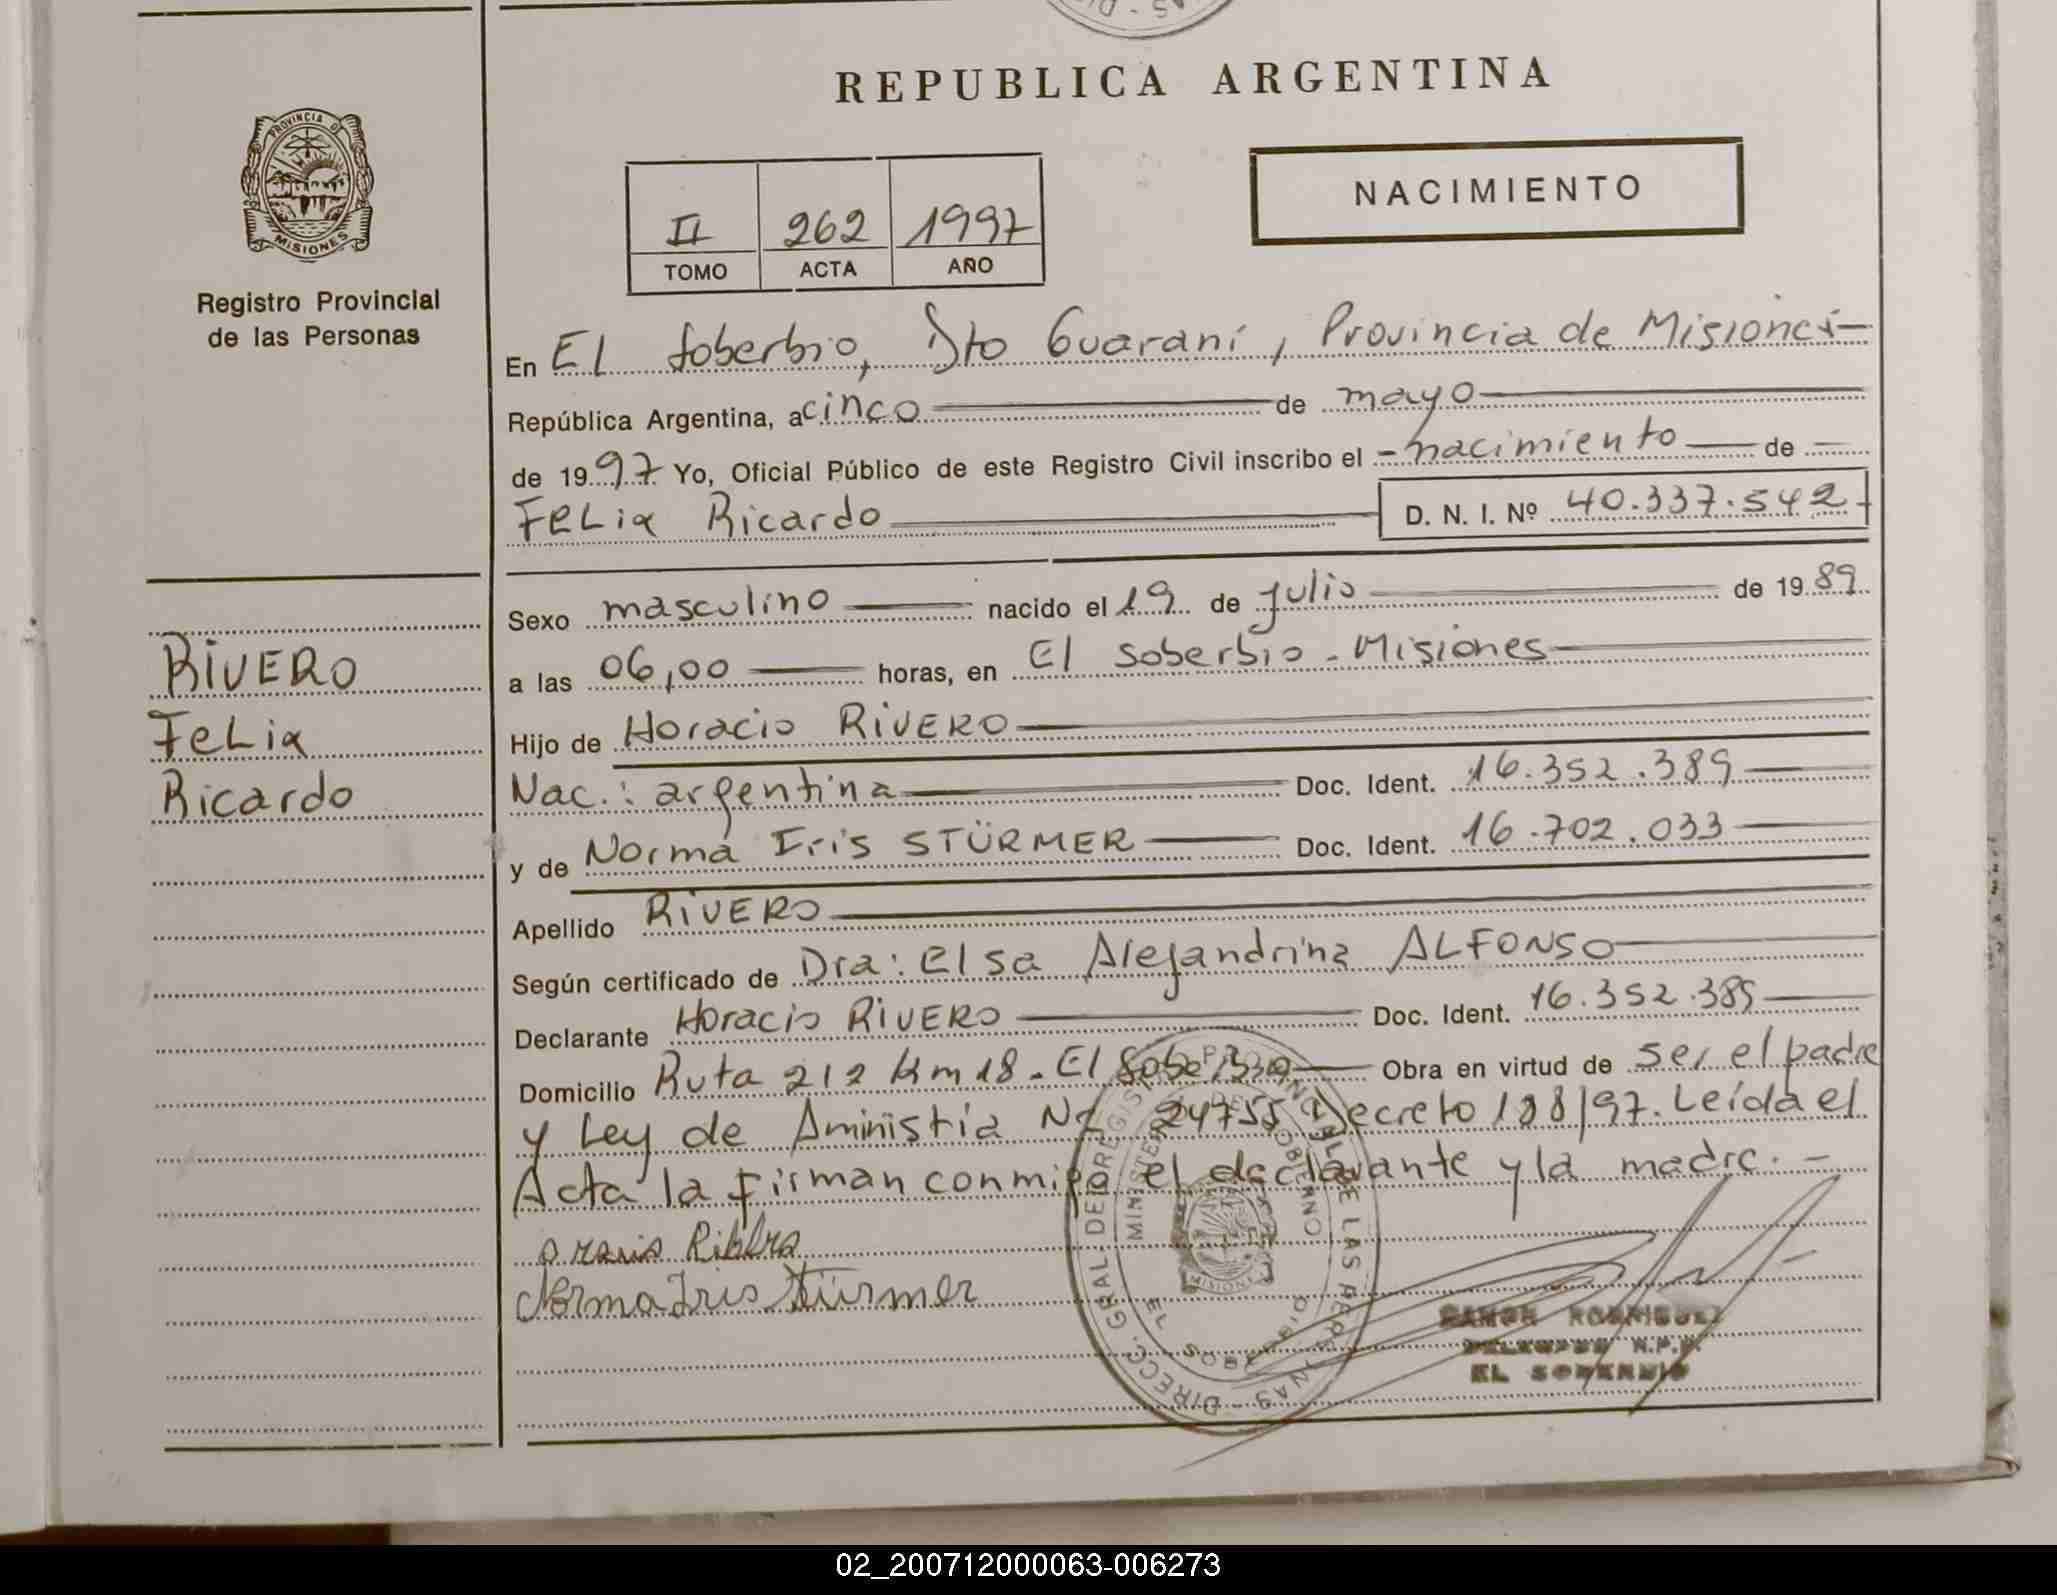 REPUBLICA ARGENTINA
PROVINCIA DE
MISIONES
Registro Provincial
de las Personas
NACIMIENTO
II 262 1997
TOMO ACTA AÑO
En El Soberbio, Dto Guaraní, Provincia de Misiones
República Argentina, a cinco de mayo
de 1997 Yo, Oficial Público de este Registro Civil inscribo el - nacimiento de
FeLix Ricardo D. N. I. Nº 40.337.542
Sexo masculino nacido el 19 de julio de 1989
a las 06,00 horas, en El Soberbio - Misiones
Hijo de Horacio RiVERO
Nac.: argentina Doc. Ident. 16.352.389
y de Norma Iris STÜRMER Doc. Ident. 16.702.033
Apellido RiVERO
Según certificado de Dra: Elsa Alejandrina ALFONSO
Declarante Horacio RiVERO Doc. Ident. 16.352.389
Domicilio Ruta 212 Km 18 - El Soberbio Obra en virtud de ser el padre
y Ley de Aministia Nº 24755 Decreto 188/97. Leída el
Acta la firman conmigo el declarante y la madre. -
Norma Iris Stürmer
RiVERO
FeLix
Ricardo
DIRECC. GRAL. DEL REGISTRO PROVINCIAL DE LAS PERSONAS
MINISTERIO DE GOBIERNO
MISIONES
EL SOBERBIO
RAMON RODRIGUEZ
DELEGADO R.P.P.
EL SOBERBIO
02_200712000063-006273